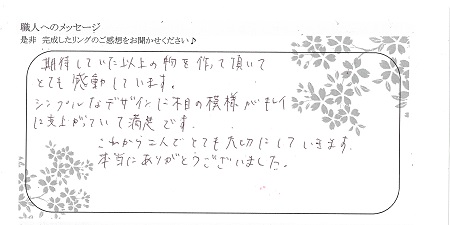 職人へのメッセージ
是非 完成したリングのご感想をお聞かせください♪
期待していた以上の物を作って頂いて
とても感動しています。
シンプルなデザインに木目の模様がキレイ
に仕上がっていて満足です。
これから二人でとても大切にしていきます。
本当にありがとうございました。